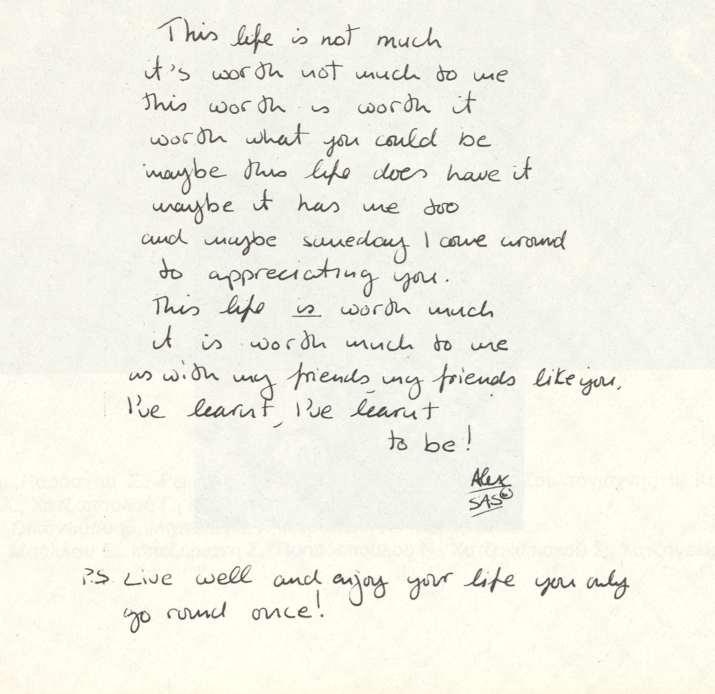 This life is not much
it's worth not much to me
this worth is worth it
worth what you could be
maybe this life does have it
maybe it has me too
and maybe someday I come around
to appreciating you.
This life is worth much
it is worth much to me
as with my friends, my friends like you,
I've learnt, I've learnt
to be!
Alex
SAS
P.S. Live well and enjoy your life you only
go round once!